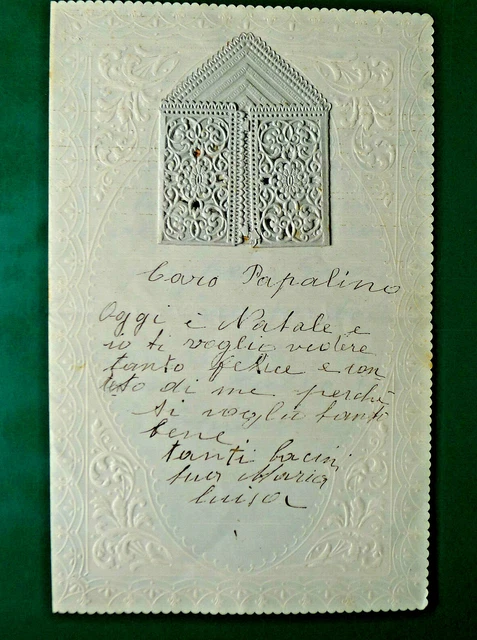 Caro Papalino
Oggi è Natale e
io ti voglio vedere
tanto felice e con
teto di me perchè
ti voglio tanto
bene
tanti bacini
tua Maria
Luisa